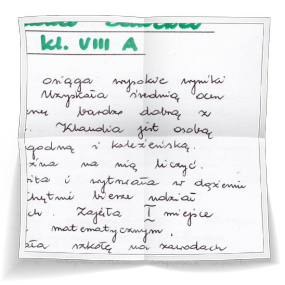 kl. VIII A
osiąga wysokie wyniki
Uzyskała średnią ocen
bardzo dobrą z
Klaudia jest osobą
i koleżeńską.
na nią liczyć.
i wytrwała w dążeniu
bierze udział
Zajęła I miejsce
matematycznym.
szkołę na zawodach